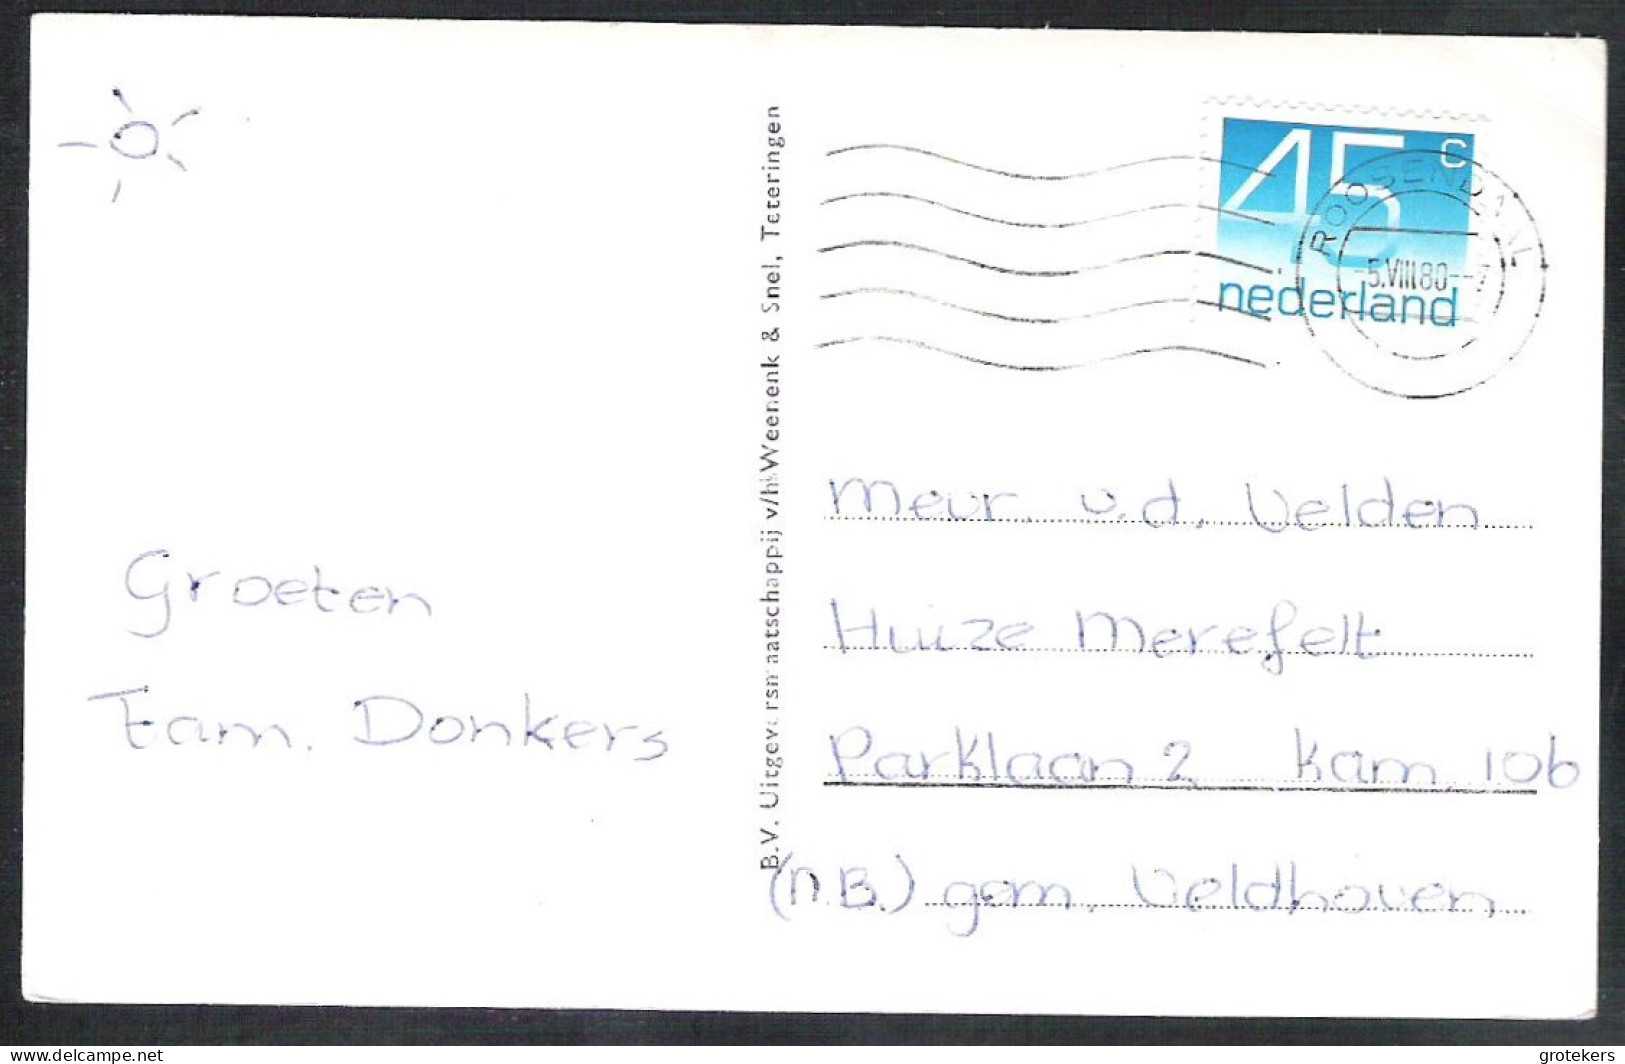 Groeten
Fam. Donkers
B.V. Uitgeversmaatschappij v/h Weenenk & Snel, Teteringen
45 c
nederland
ROOSENDAAL
-5.VIII80--7
Mevr. v.d. Velden
Huize Merefelt
Parklaan 2 Kam. 10b
(N.B.) gem. Veldhoven
www.delcampe.net
grotekers